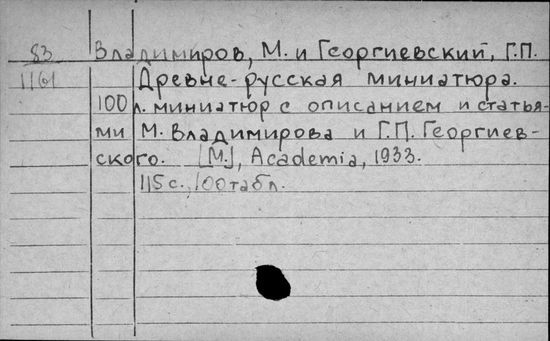 83 Владимиров, М. и Георгиевский, Г.П.
1161 Древне-русская миниатюра.
100 л. миниатюр с описанием и статья-
ми М. Владимирова и Г.П. Георгиев-
ского. [М.], Academia, 1933.
115 с., 100 табл.